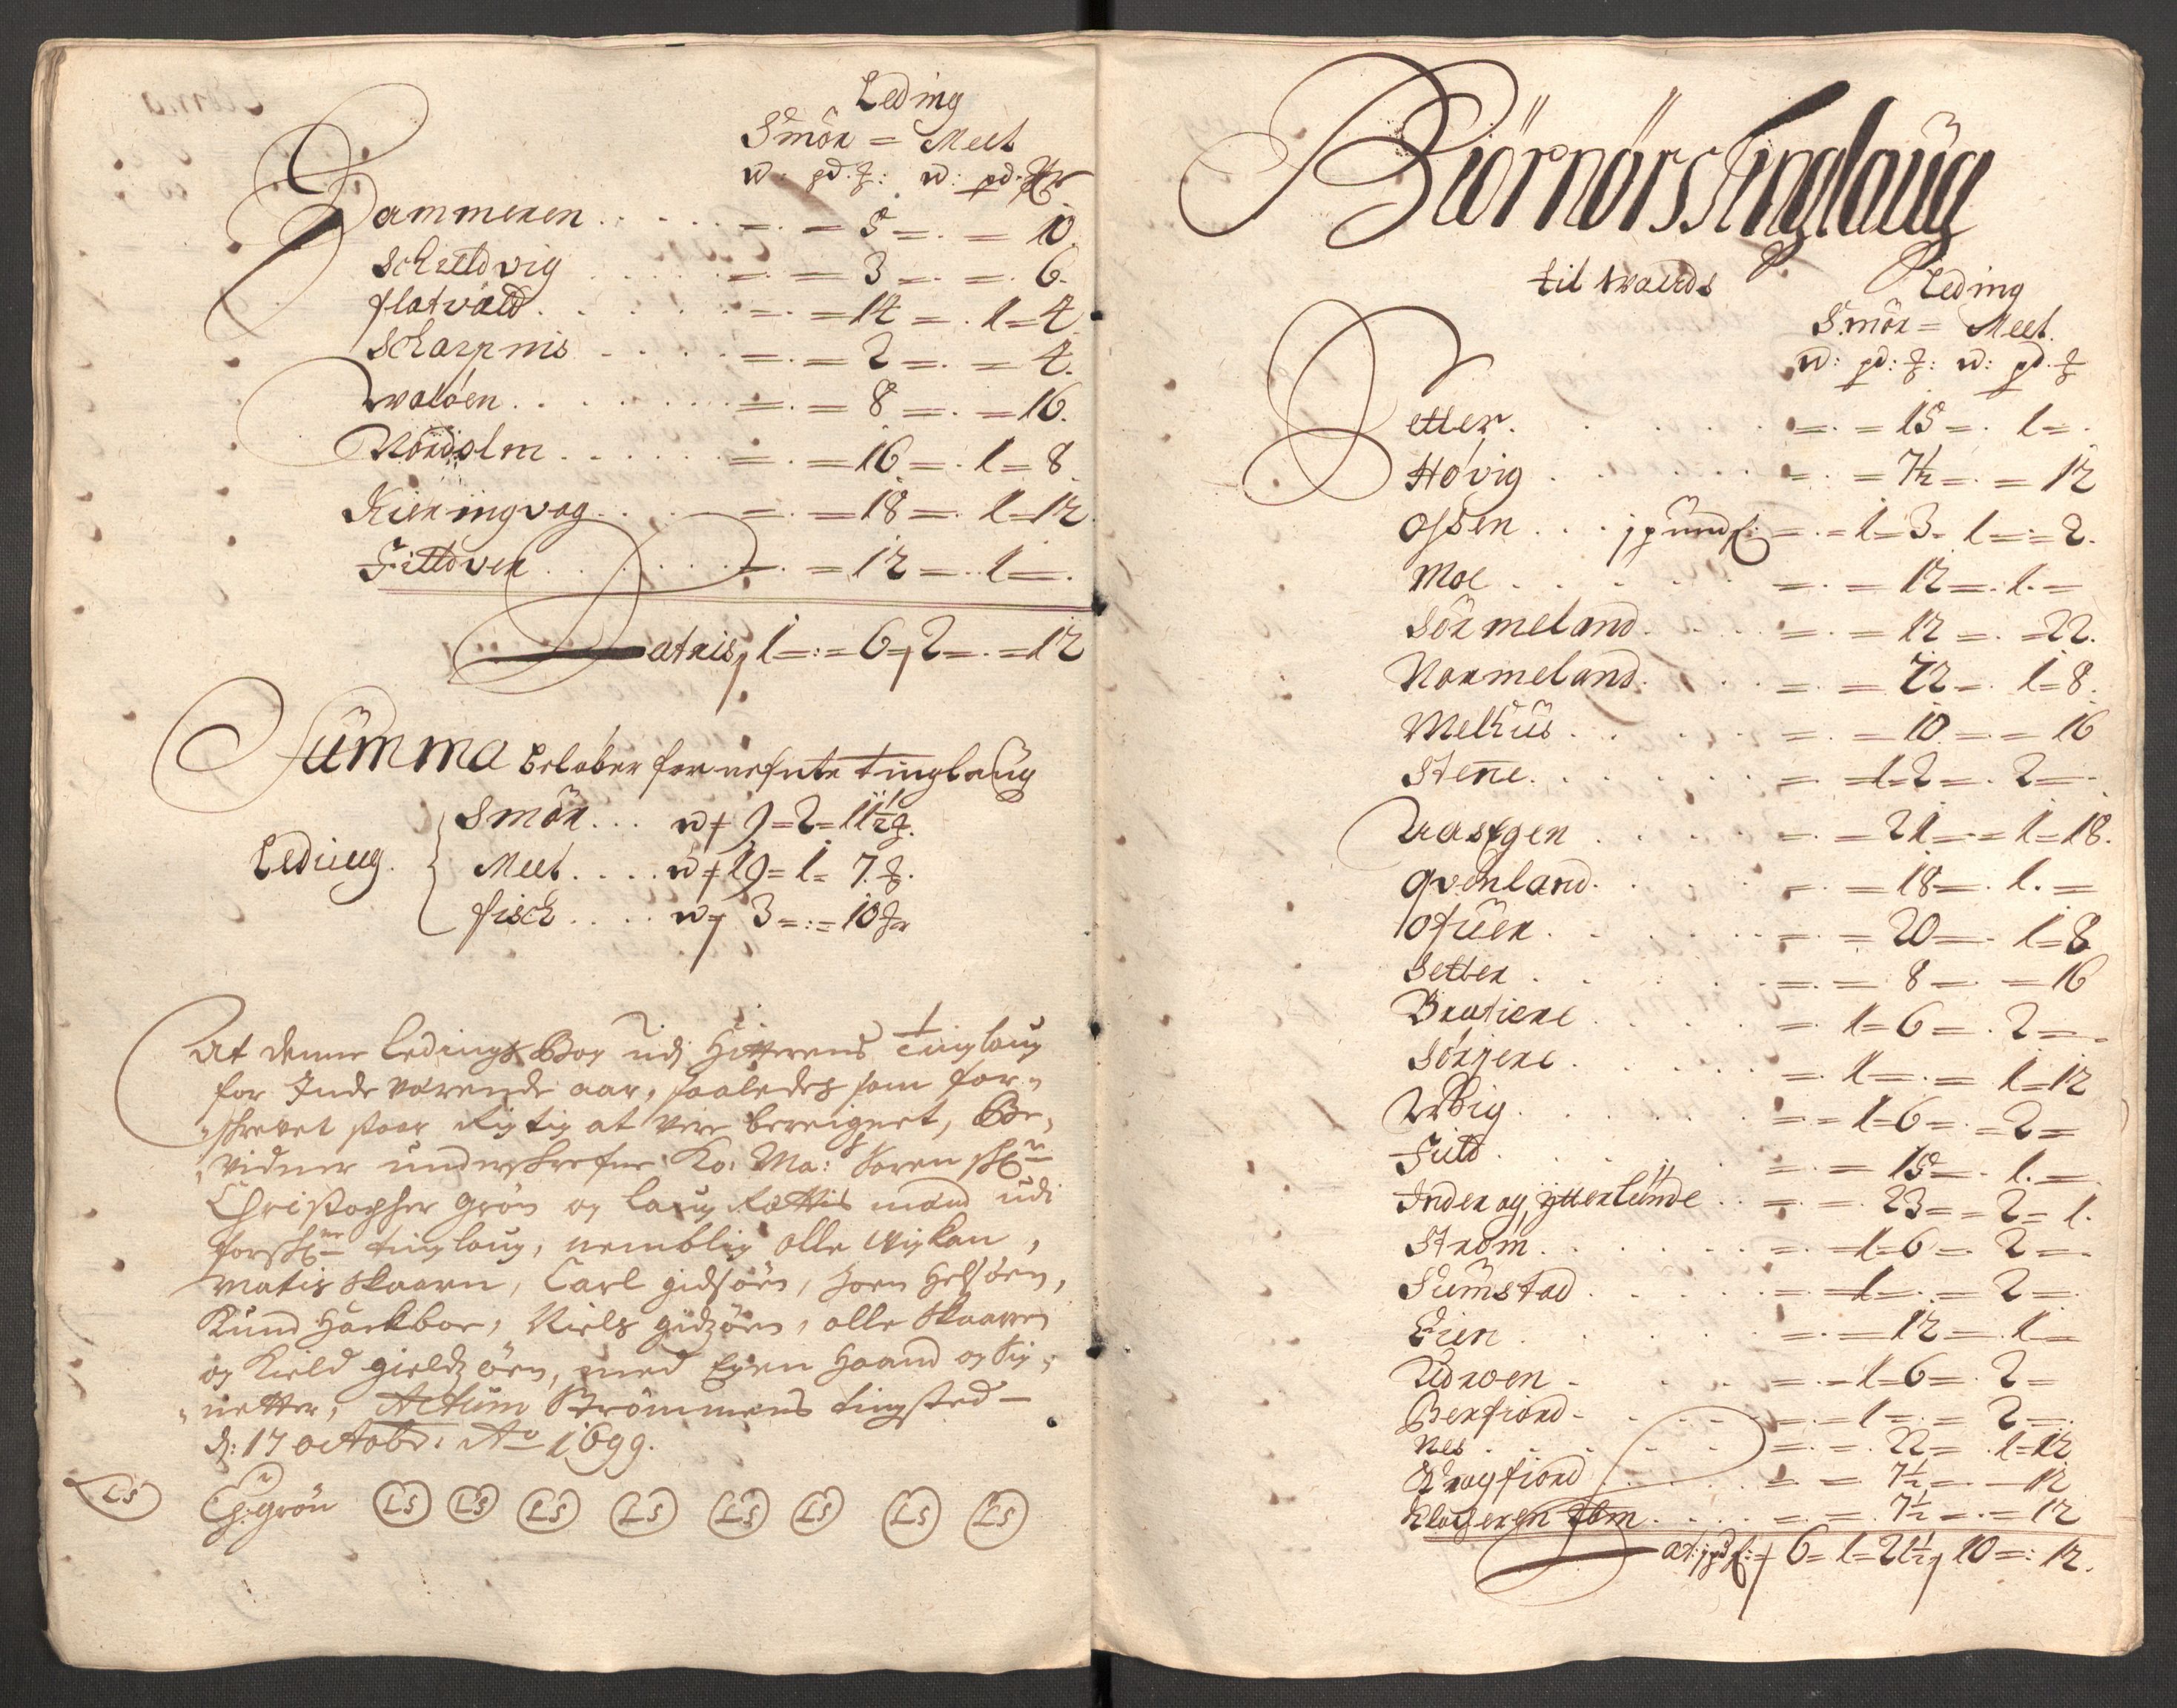 Leding
Smör = Meel
w: pd. ℔: w: pd. ℔r
Hammeren . . . =. = 5 =. = 10.
Schieldvig . . . . =. = 3 =. =. 6.
flatvald . . . . =. = 14 =. 1 = 4.
Scharpnis . . . . =. = 2 =. = 4.
Qvalöen . . . . =. = 8 =. = 16.
Nordholm . . . . =. = 16 =. 1 = 8.
Kierringvog . . . =. = 18 =. 1 = 12.
Fildver . . . . =. = 12 =. 1 =.
Latris, 1 =:= 6, 2 =. = 12
Summa beløber fornefnte tinglaug
Leding.
Smör . . . w, 9 = 2 = 11½ ℔.
Meel . . . . w, 19 = 1 = 7. ℔.
fisch . . . . w, 3 =:= 10 ℔r
At denne ledings Bog udj Hitterens Tinglaug
for Inde værende aar, saaledes som for-
skrevet staar Rigtig at vere beregnet, Be-
vidner underskrefne Ko: Ma: Soren sk:
Christopher Grön og laug Rettis mænd udi
forsk:ne tinglaug, nemblig olle Vigkan,
Matis Skaarn, Carl gidsöen, Joen Helsöen,
Knud Hackboe, Niels gidsöen, olle Skaaren
og Kield gieldsöen, med Egen Haand og Sig-
netter, Actum Strömmens tingsted —
d: 17 octobr: Ao 1699.
LS Ch: grön LS LS LS LS LS LS LS LS
Biörnörs Tinglaug
til waerds
Leding
Smör = Meel.
w: pd: ℔: w: pd. ℔
Setter . . . . =. = 15 =. 1 =.
Hövig . . . . =. = 7½ =. = 12
Ossen . . . 1 pund f: =. = 1 = 3. 1 =:= 2.
Moe . . . . =. = 12 =. 1. =
Sörmeland . . . =. = 12 =. = 22.
Normeland . . . =. = 22 =. 1 = 8.
Melhuus . . . . =. = 10 =. = 16
Stene . . . . = 1 = 2 =. 2 =.
Aasegen . . . . =. = 21 =. = 1 = 18.
qvenland . . . . =. = 18 =. 1. =
Ofuer . . . . =. = 20 =. 1 = 8
Setter . . . . =. = 8 =. = 16
Bratiere . . . . =. 1 = 6 =. 2 =.
Sörjere . . . . =. 1 =. = 1 = 12
Wiig . . . . = = 1 = 6 =. = 2 =
Fild . . . . =. = 15 =. 1. =
Inder og ytterlunde . . =. =. 23 = = 2 = 1.
Ström . . . . =. = 1 = 6 =. 2 =.
Sumstad . . . . =. = 1 =. = 2 =.
Eien . . . . =. = 12 =. 1 =
Terroen . . . . =. = 1 = 6 =. 2 =
Berfiord . . . . =. = 1 =. = 2 =.
Nes . . . . =. =. 22 =. 1 = 12
Kragfiord . . . . =. = 7½ =. = 12
Klocheren . . . =. =. 7½ =. = 12
at: 1 pd f: , 6 = 1 = 21½, 10 =: 12.